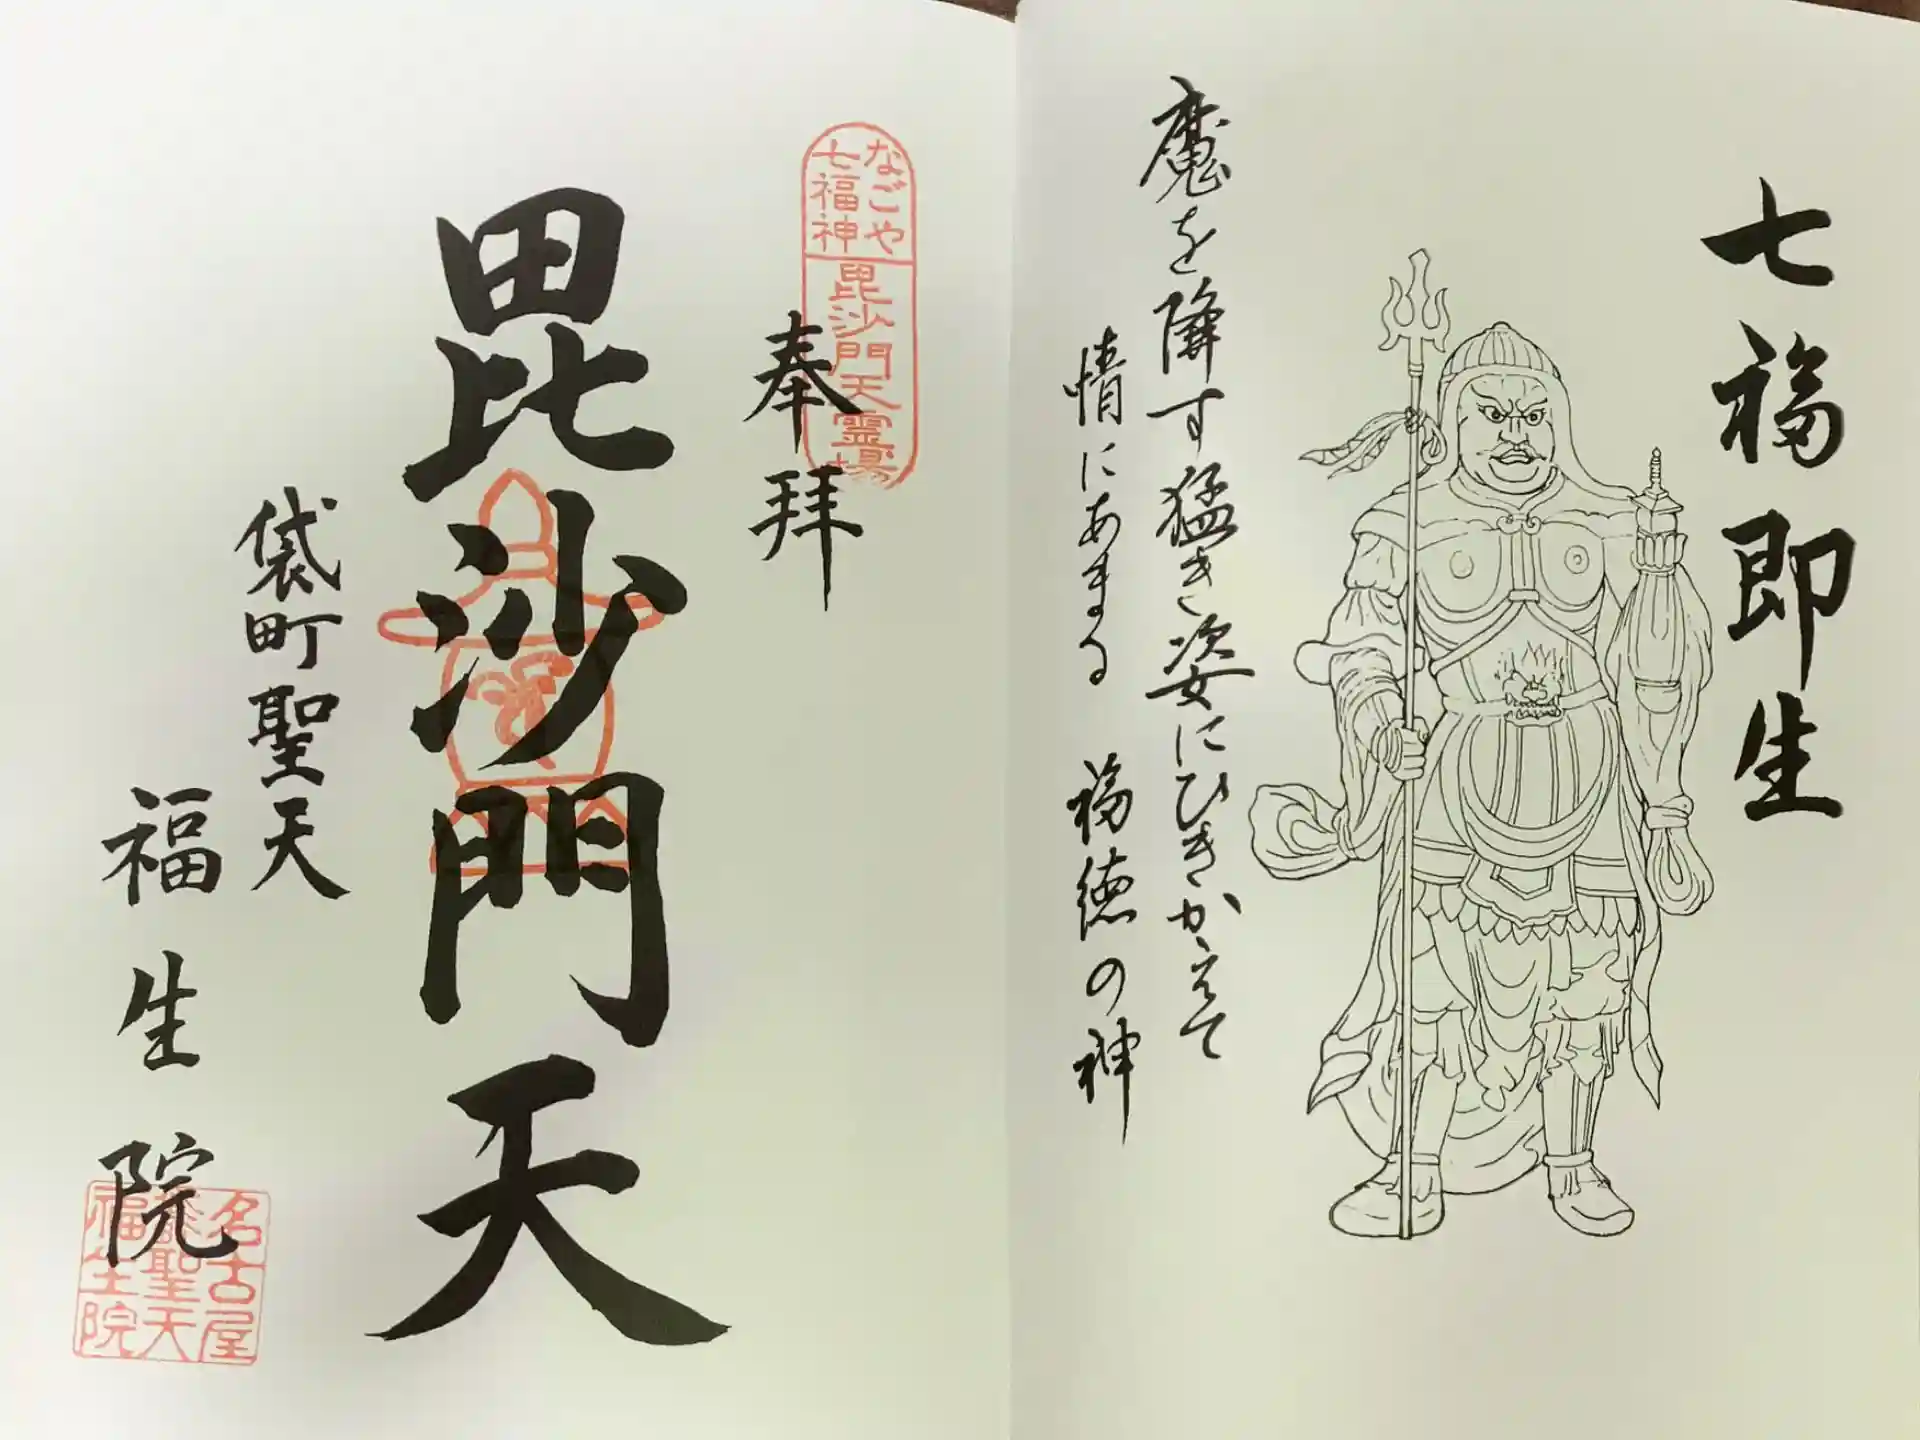 七福即生
魔を降す猛き姿にひきかえて
情にあまる 福徳の神
なごや
七福神
毘沙門天霊場
奉拝
毘沙門天
袋町聖天
福生院
名古屋
聖天
福生院